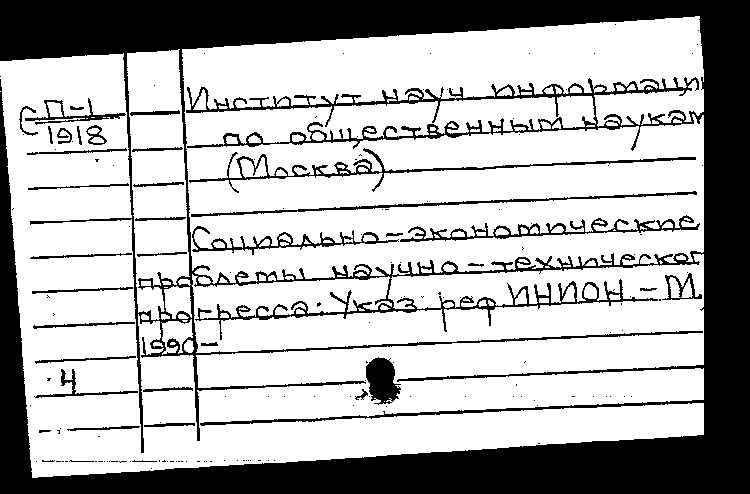 С П-1
1918
Институт науч информации
по общественным наукам
(Москва)
Социально-экономические
проблемы научно-техническог
прогресса: Указ реф. ИНИОН. - М.,
1990-
4